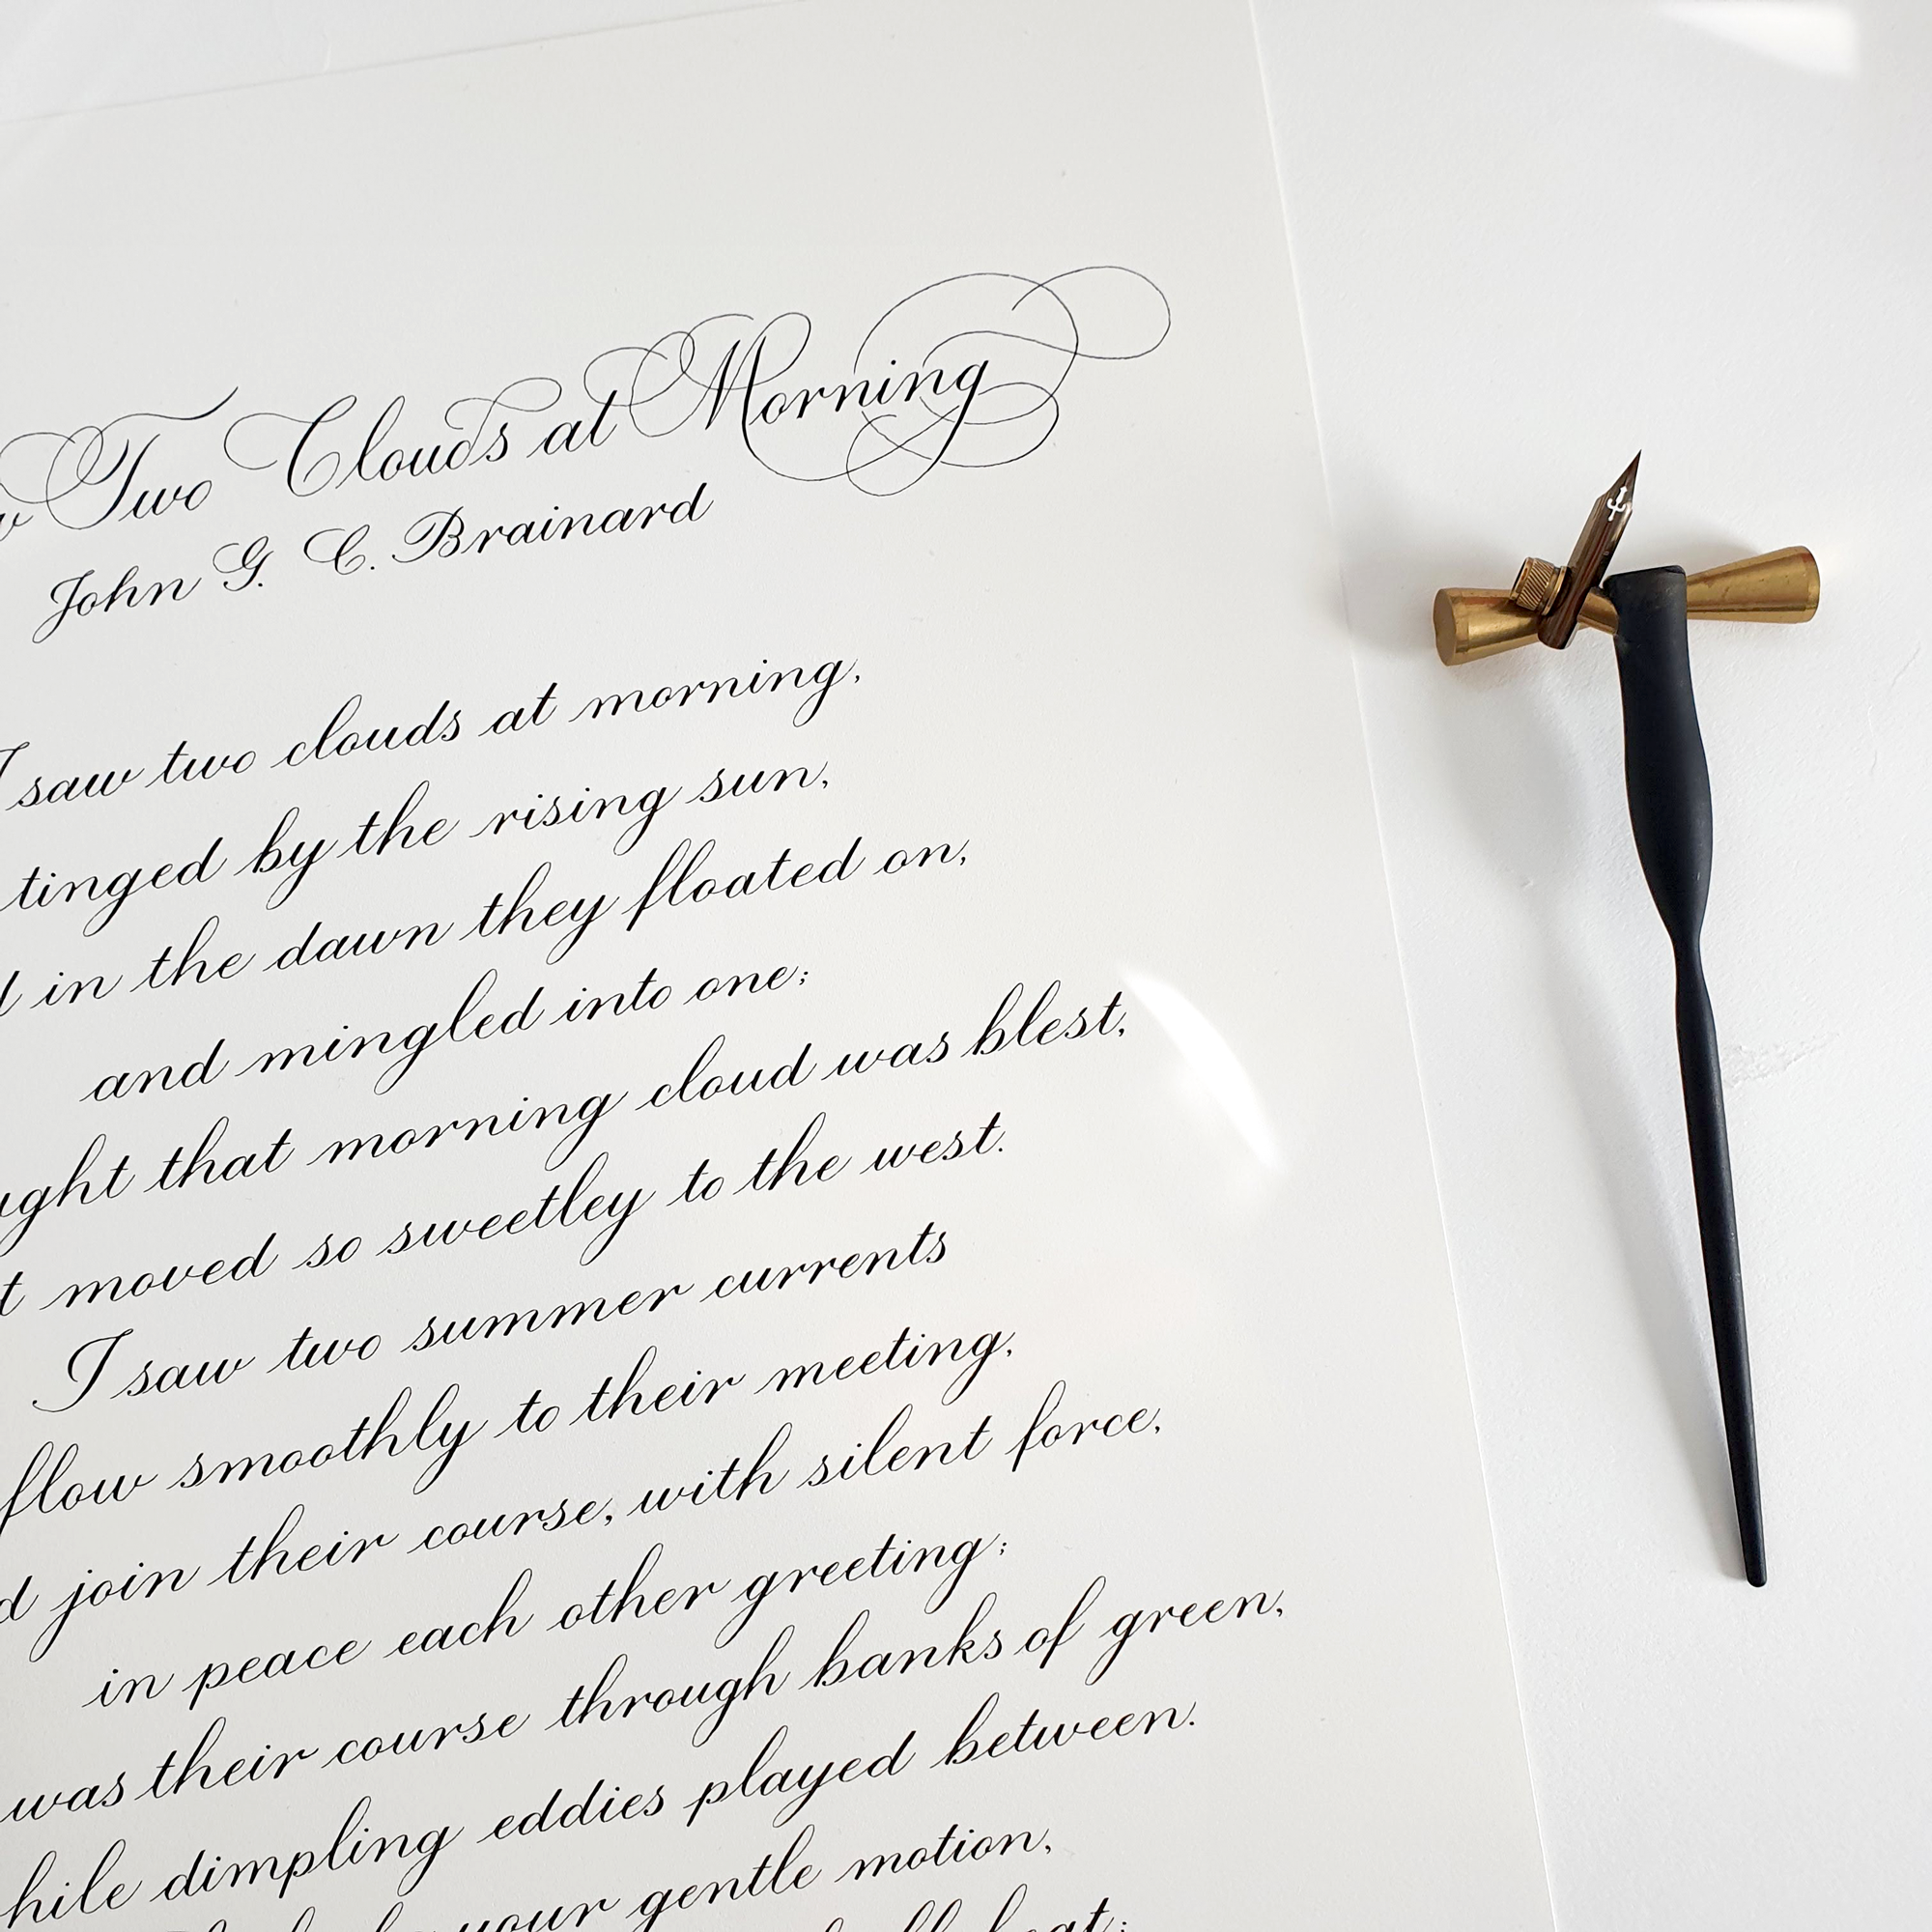 Two Clouds at Morning
John G. C. Brainard
I saw two clouds at morning,
tinged by the rising sun,
in the dawn they floated on,
and mingled into one;
that morning cloud was blest,
moved so sweetley to the west.
I saw two summer currents
flow smoothly to their meeting,
join their course, with silent force,
in peace each other greeting;
was their course through banks of green,
dimpling eddies played between.
your gentle motion,